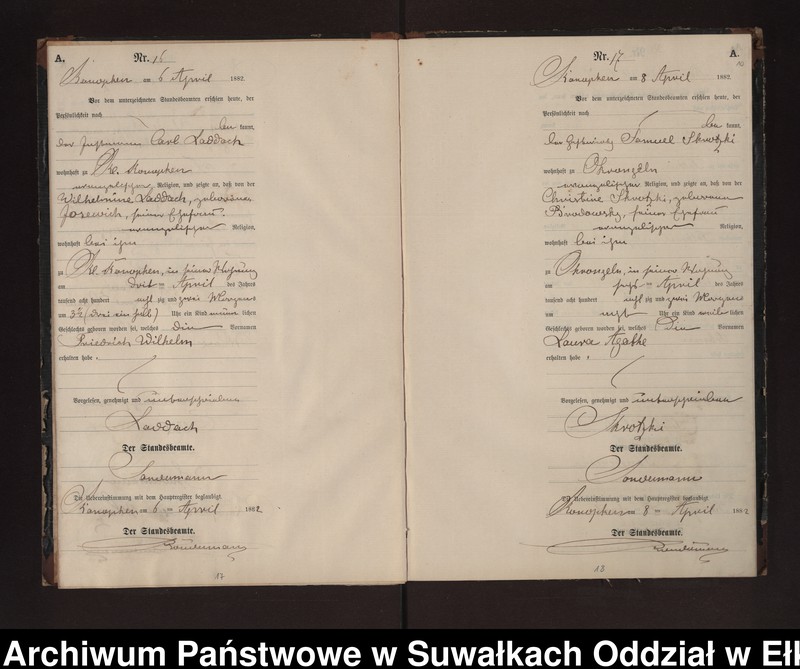 A.
Nr. 16
Konopken am 6 April 1882.
Vor dem unterzeichneten Standesbeamten erschien heute, der
Persönlichkeit nach
be kannt,
der Carl Laddach
wohnhaft zu Kl. Konopken
evangelischer Religion, und zeigte an, daß von der
Wilhelmine Laddach, geborenen
Josewich, seiner Ehefrau
evangelischer Religion,
wohnhaft bei ihm
zu Kl. Konopken, in seiner Wohnung
am drit ten April des Jahres
tausend acht hundert acht zig und zwei Morgens
um 3½ (drei ein halb) Uhr ein Kind männ lichen
Geschlechts geboren worden sei, welches die Vornamen
Friedrich Wilhelm
erhalten habe.
Vorgelesen, genehmigt und unterschrieben
Laddach
Der Standesbeamte.
Sondermann
Die Uebereinstimmung mit dem Hauptregister beglaubigt.
Konopken am 6 ten April 1882
Der Standesbeamte.
Sondermann
17
A.
Nr. 17
Konopken am 8 April 1882.
Vor dem unterzeichneten Standesbeamten erschien heute, der
Persönlichkeit nach
be kannt,
der Samuel Skrotzki
wohnhaft zu Chronzeln
evangelischer Religion, und zeigte an, daß von der
Christine Skrotzki, geborenen
Brodowsky, seiner Ehefrau
evangelischer Religion,
wohnhaft bei ihm
zu Chronzeln, in seiner Wohnung
am sechs ten April des Jahres
tausend acht hundert acht zig und zwei Morgens
um acht Uhr ein Kind weib lichen
Geschlechts geboren worden sei, welches die Vornamen
Laura Agathe
erhalten habe.
Vorgelesen, genehmigt und unterschrieben
Skrotzki
Der Standesbeamte.
Sondermann
Die Uebereinstimmung mit dem Hauptregister beglaubigt.
Konopken am 8 ten April 1882
Der Standesbeamte.
Sondermann
18
Archiwum Państwowe w Suwałkach Oddział w Ełk